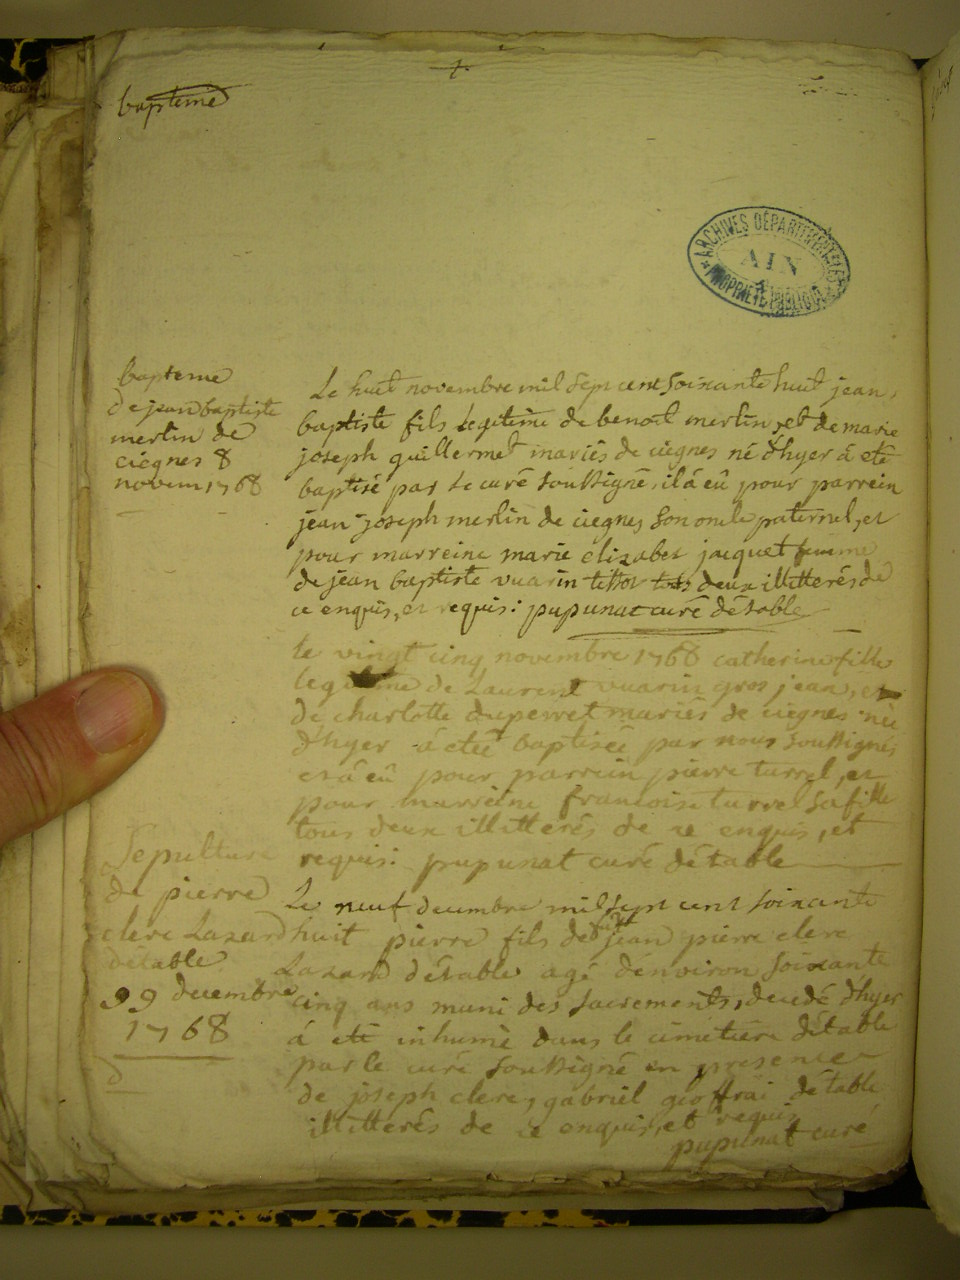 baptême
ARCHIVES DÉPARTEMENTALES
AIN
PROPRIÉTÉ PUBLIQUE
bapteme
de jean baptiste
merlin de
ciegnes 8
novem 1768
Le huit novembre mil sept cent soixante huit jean,
baptiste fils legitime de benoit merlin, et de marie
joseph quillermet mariés de ciegnes né d'hyer á eté
baptisé par le curé soussigné, il á eû pour parrein
jean joseph merlin de ciegnes son oncle paternel, et
pour marreine marie elizabet jacquet femme
de jean baptiste vuarin tissot deux illitterés de
ce enquis, et requis: pupunat curé détable
le vingt cinq novembre 1768 catherine fille
legitime de Laurent vuarin gros jean, et
de charlotte duperret mariés de ciegnes née
d'hyer á eteé baptiseé par nous soussigné,
et á eû pour parrein pierre turrel, et
pour marreine francoise turrel sa fille
tous deux illitterés de ce enquis, et
requis: pupunat curé détable
Sepulture
de pierre
clerc Lazard
détable
9 decembre
1768
Le neuf decembre mil sept cent soixante
huit pierre fils de feu jean pierre clerc
Lazard détable agé d'environ soixante
cinq ans muni des sacrements, decedé d'hyer
á eté inhumé dans le cimetiere détable
par le curé soussigné en presence
de joseph clerc, gabriel geoffrai détable
illitterés de ce enquis, et requis
pupunat curé